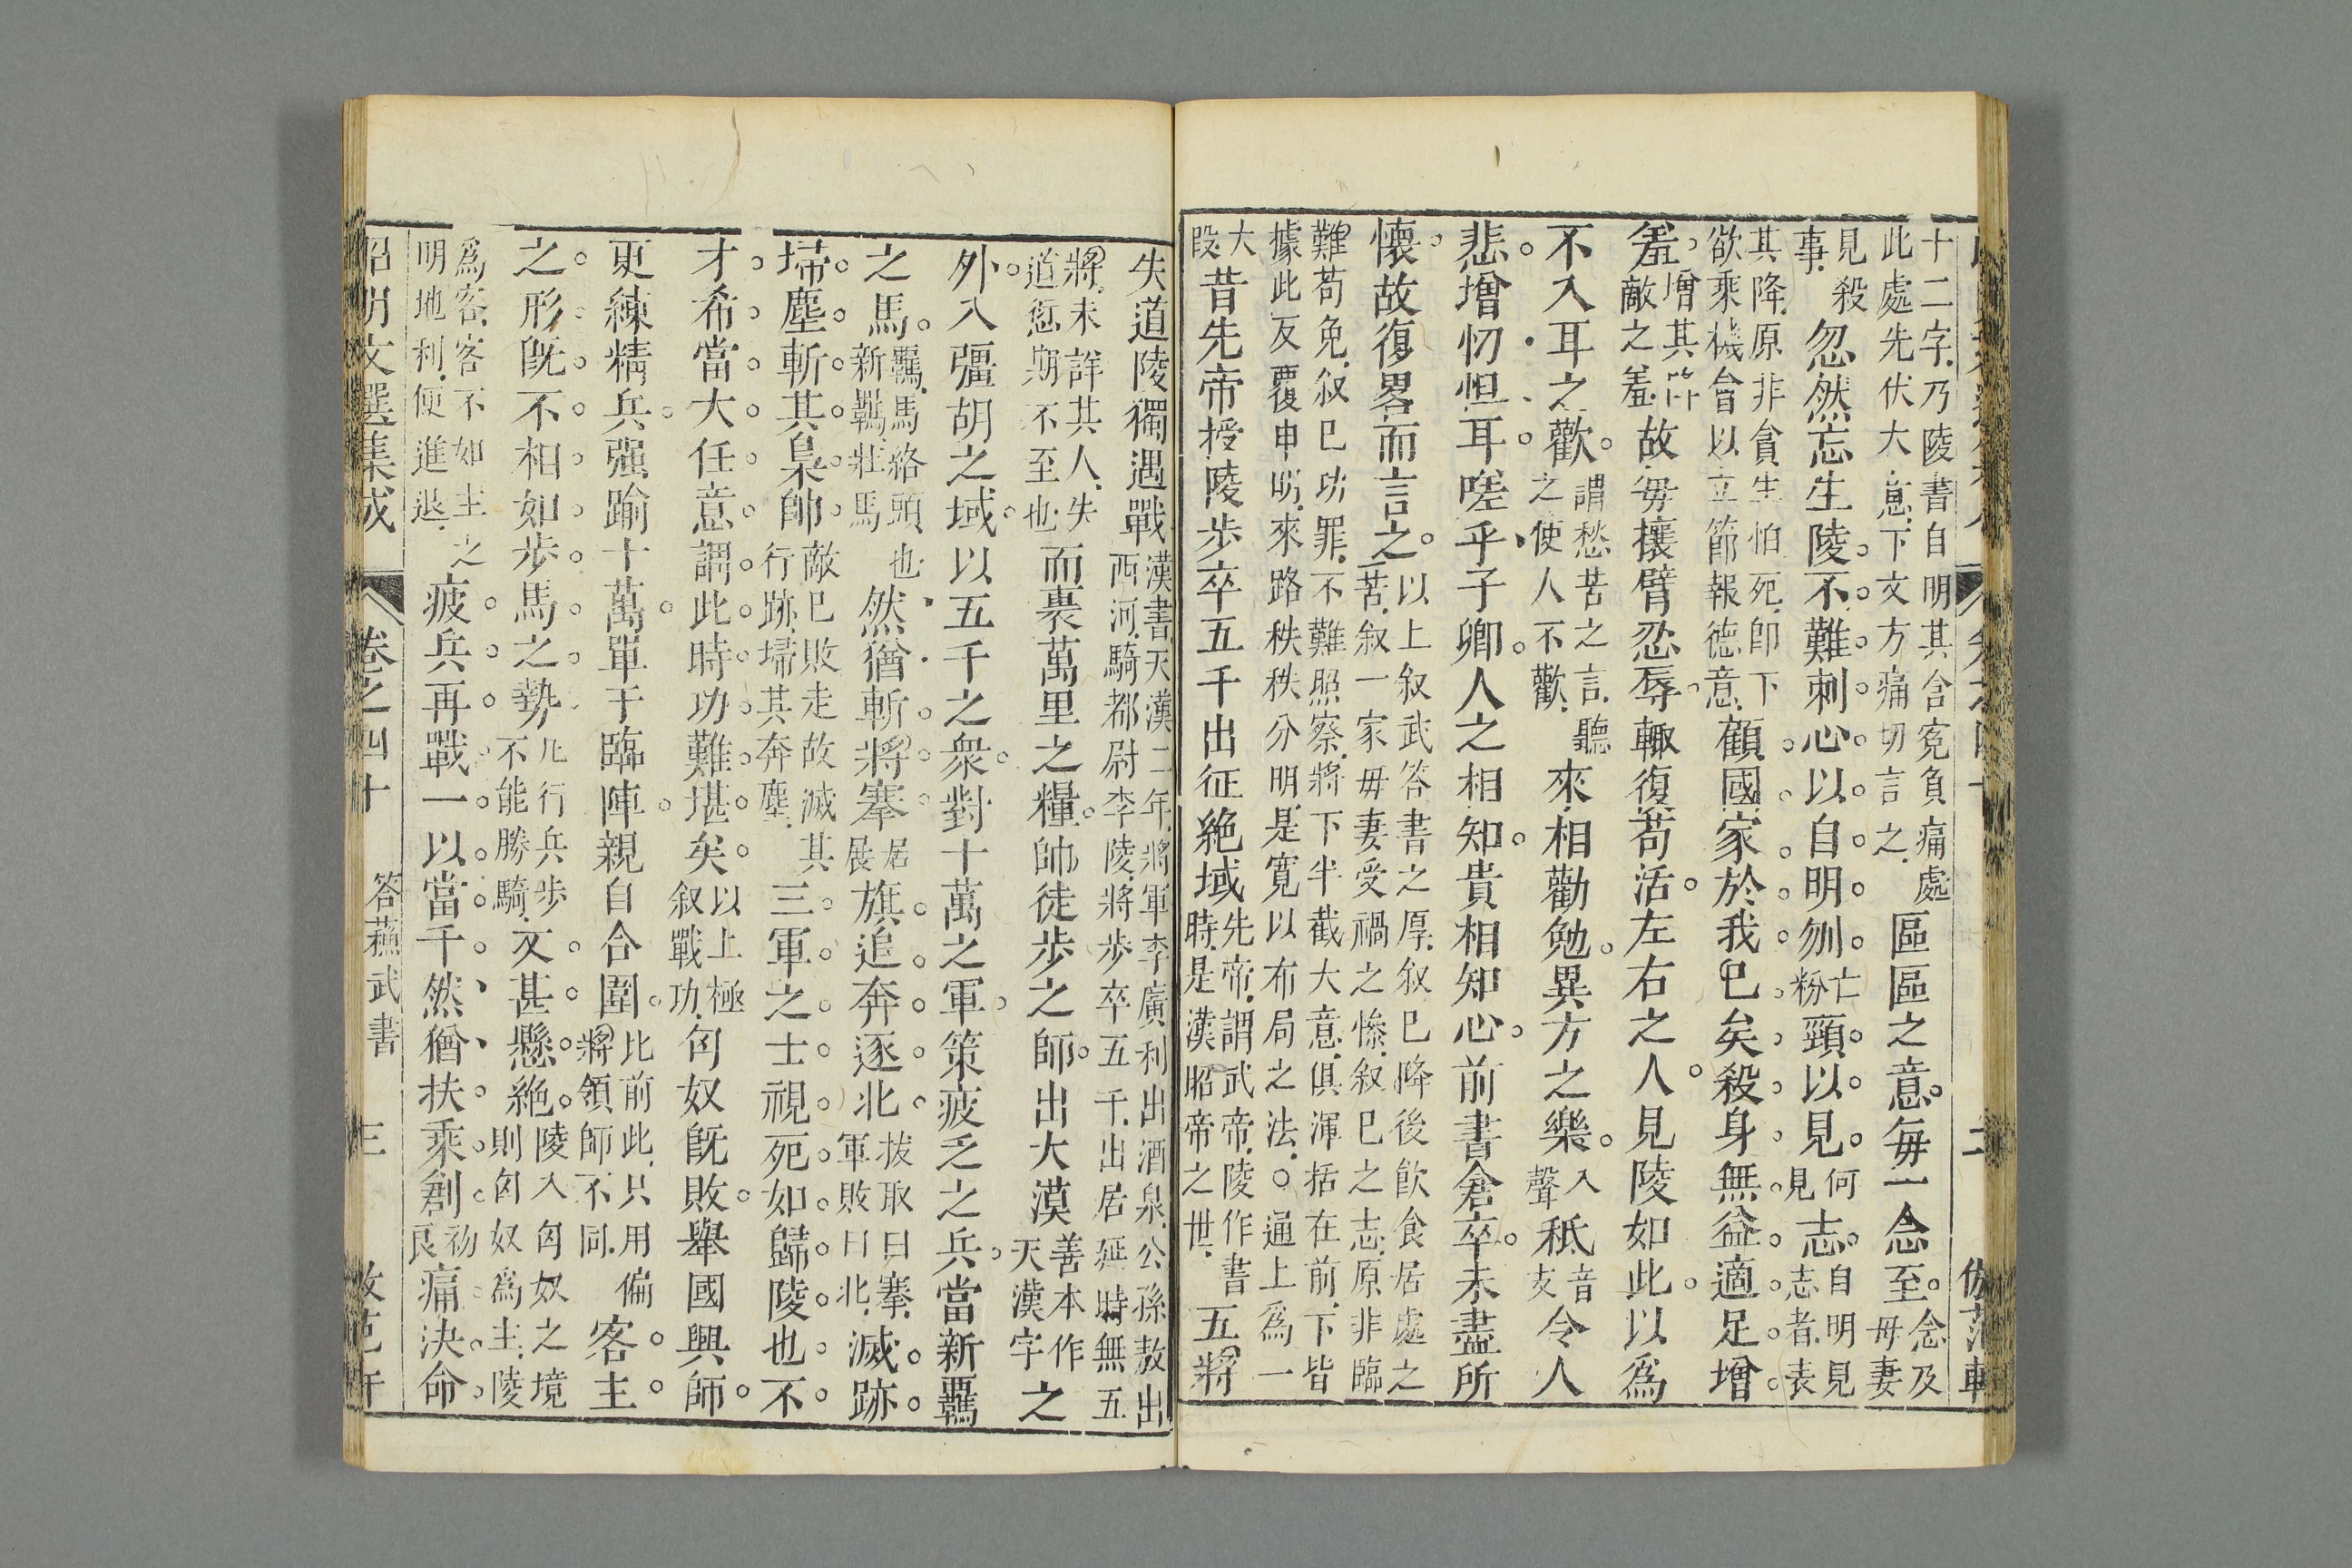 十二字乃陵書自明其含寃負痛處
此處先伏大意下文方痛切言之區區之意每一念至念及母妻
見殺事忽然忘生陵不難刺心以自明刎亡粉頸以見何見志自明見志者表
其降原非貪生怕死卽下
欲乘機會以立節報德意顧國家於我已矣殺身無益適足增
羞增其敵之羞故每攘臂忍辱輙復苟活左右之人見陵如此以爲
不入耳之歡謂愁苦之言聽之使人不歡來相勸勉異方之樂入聲秖音支令人
悲增忉怛耳嗟乎子卿人之相知貴相知心前書倉卒未盡所
懷故復畧而言之以上叙武答書之厚叙已降後飮食居處之
苦叙一家母妻受禍之慘叙已之志原非臨
難苟免叙已功罪不難照察將下半截大意俱渾括在前下皆
據此反覆申明來路秩秩分明是寬以布局之法○通上爲一
大段昔先帝授陵步卒五千出征絶域先帝謂武帝陵作書時是漢昭帝之世五將
失道陵獨遇戰漢書天漢二年將軍李廣利出酒泉公孫敖出
西河騎都尉李陵將步卒五千出居延時無五
將未詳其人失道愆期不至也而裹萬里之糧帥徒步之師出大漠善本作天漢字之
外入彊胡之域以五千之衆對十萬之軍策疲乏之兵當新羈
之馬羈馬絡頭也新羈壯馬然猶斬將搴居展旗追奔逐北拔取曰搴軍敗曰北滅跡
埽塵斬其梟帥敵已敗走故滅其行跡埽其奔塵三軍之士視死如歸陵也不
才希當大任意謂此時功難堪矣以上極叙戰功匈奴旣敗舉國興師
更練精兵强踰十萬單于臨陣親自合圍比前此只用偏將領師不同客主
之形旣不相如步馬之勢凡行兵步不能勝騎又甚懸絶陵入匈奴之境則匈奴爲主陵
爲客客不如主之明地利便進退疲兵再戰一以當千然猶扶乘創初良痛決命
昭明文選集成
卷之四十
答蘇武書
三